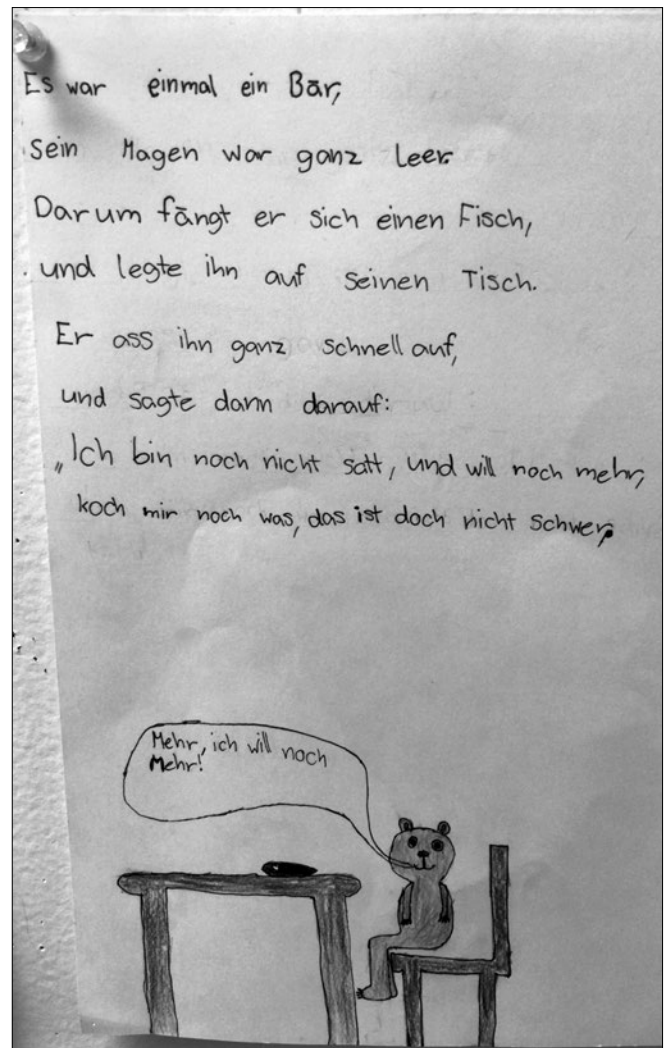 Es war einmal ein Bär,
Sein Magen war ganz leer.
Darum fängt er sich einen Fisch,
und legte ihn auf seinen Tisch.
Er ass ihn ganz schnell auf,
und sagte dann darauf:
„Ich bin noch nicht satt, und will noch mehr,
koch mir noch was, das ist doch nicht schwer.
Mehr, ich will noch
Mehr!